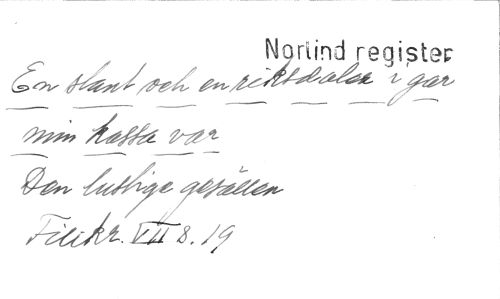 Norlind register
En slant och en riksdaler i går
min kassa var
Den lustige gesällen
Filikr. VII 8. 19